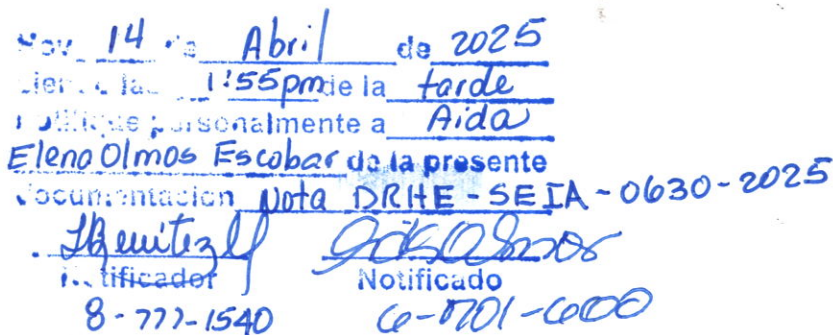 Hoy 14 de Abril de 2025
siendo las 1:55pm de la tarde
Notifique personalmente a Aida
Elena Olmos Escobar de la presente
documentación Nota DRHE-SEIA-0630-2025
Notificador Notificado
8-777-1540